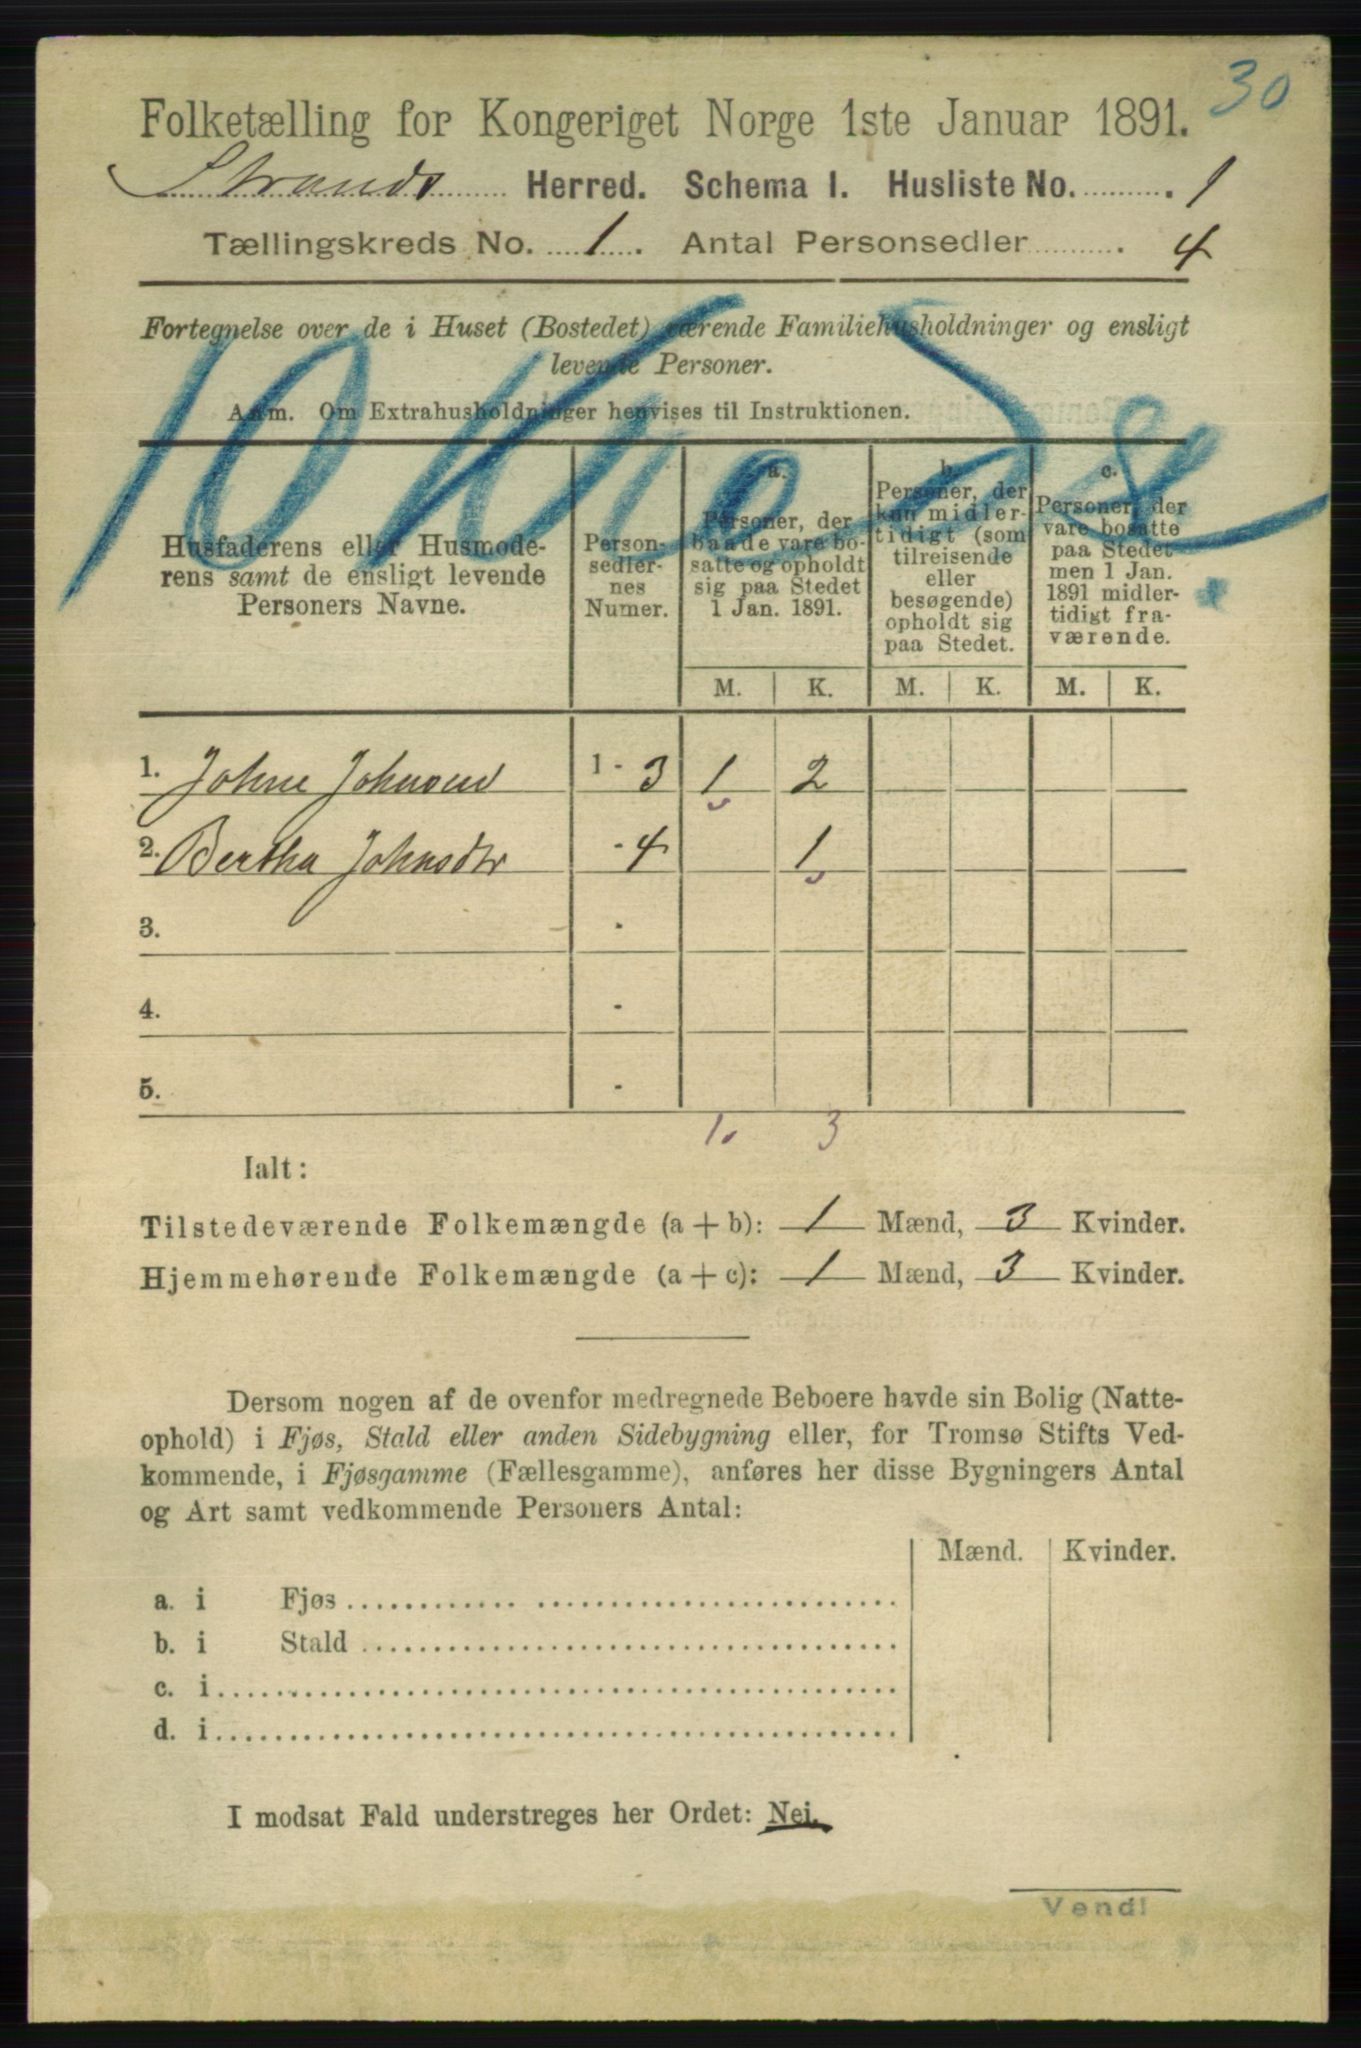 30
Folketælling for Kongeriget Norge 1ste Januar 1891.
Strands Herred. Schema I. Husliste No. 1
Tællingskreds No. 1. Antal Personsedler 4
Fortegnelse over de i Huset (Bostedet) værende Familiehusholdninger og ensligt
levende Personer.
Anm. Om Extrahusholdninger henvises til Instruktionen.
Husfaderens eller Husmode-
rens samt de ensligt levende
Personers Navne.
Person-
sedler-
nes
Numer.
a.
Personer, der
baade vare bo-
satte og opholdt
sig paa Stedet
1 Jan. 1891.
b.
Personer, der
kun midler-
tidigt (som
tilreisende
eller
besøgende)
opholdt sig
paa Stedet.
c.
Personer, der
vare bosatte
paa Stedet
men 1 Jan.
1891 midler-
tidigt fra-
værende.
M. K. M. K. M. K.
1. Johne Johnsen 1 - 3 1 2
2. Bertha Johnsdtr - 4 1
3. -
4. -
5. -
1. 3
Ialt:
Tilstedeværende Folkemængde (a + b): 1 Mænd, 3 Kvinder.
Hjemmehørende Folkemængde (a + c): 1 Mænd, 3 Kvinder.
Dersom nogen af de ovenfor medregnede Beboere havde sin Bolig (Natte-
ophold) i Fjøs, Stald eller anden Sidebygning eller, for Tromsø Stifts Ved-
kommende, i Fjøsgamme (Fællesgamme), anføres her disse Bygningers Antal
og Art samt vedkommende Personers Antal:
Mænd. Kvinder.
a. i Fjøs
b. i Stald
c. i
d. i
I modsat Fald understreges her Ordet: Nei.
Vend!